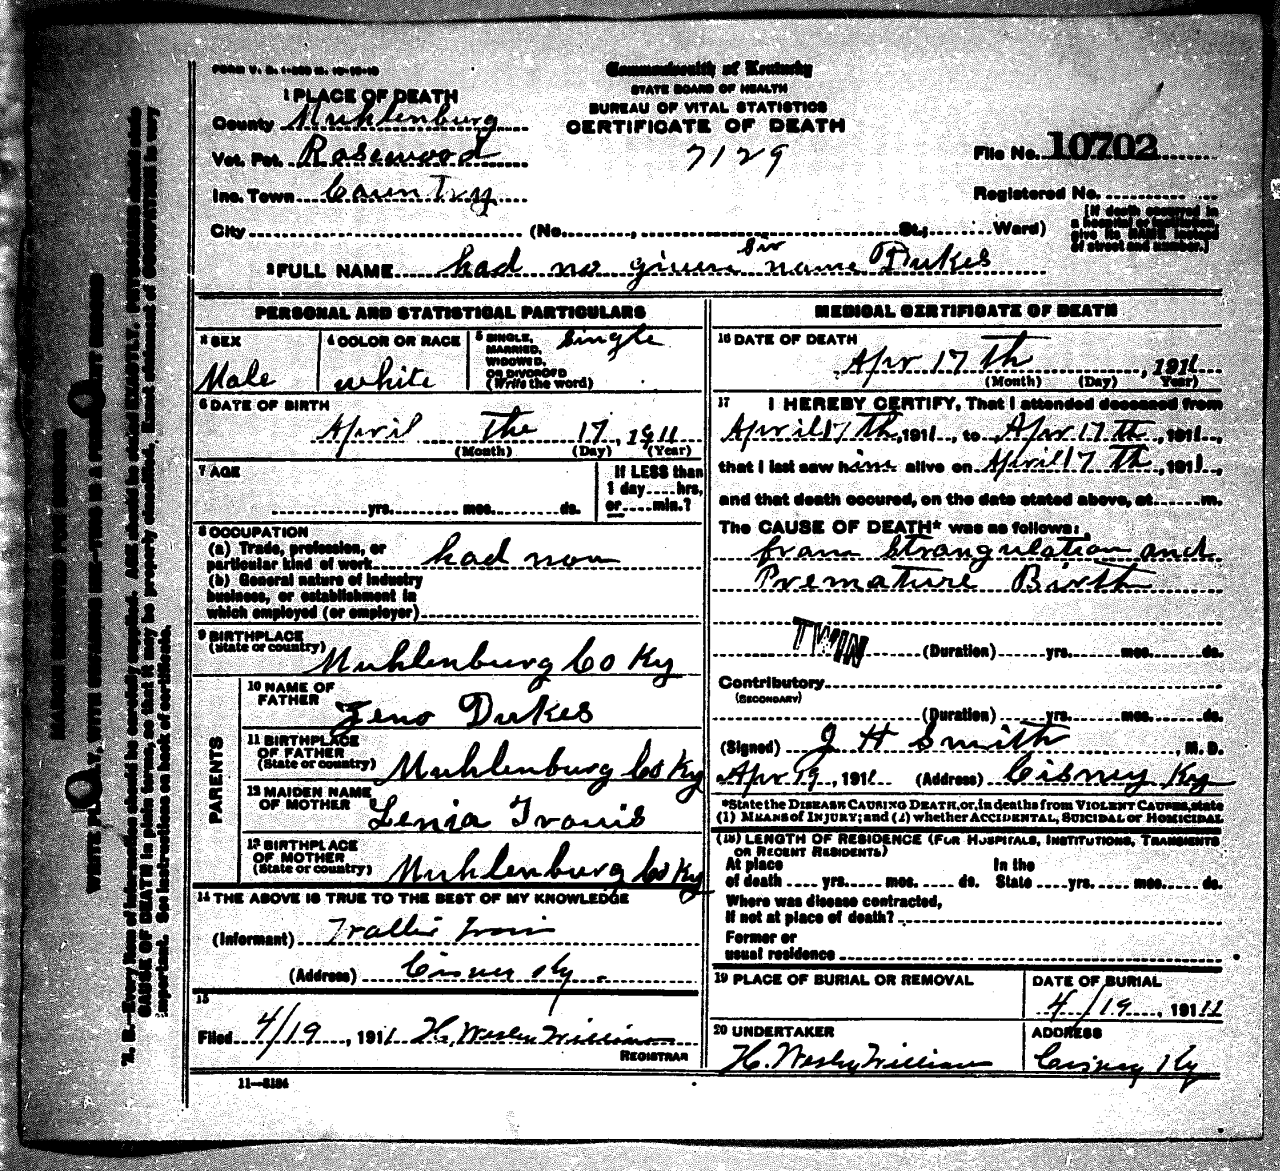 FORM V. S. 1-
Commonwealth of Kentucky
STATE BOARD OF HEALTH
BUREAU OF VITAL STATISTICS
CERTIFICATE OF DEATH
7129
File No. 10702
Registered No.
[If death occurred in
a hospital or institution,
give its NAME instead
of street and number.]
1 PLACE OF DEATH
County Muhlenburg
Vot. Pct. Rosewood
Inc. Town Country
City (No. , St.; Ward)
2 FULL NAME had no given name Dukes
PERSONAL AND STATISTICAL PARTICULARS
3 SEX
Male
4 COLOR OR RACE
white
5 SINGLE,
MARRIED,
WIDOWED,
OR DIVORCED
(Write the word)
Single
6 DATE OF BIRTH
April the 17, 1911
(Month) (Day) (Year)
7 AGE
yrs. mos. ds.
If LESS than
1 day hrs,
or min.?
8 OCCUPATION
(a) Trade, profession, or
particular kind of work had non
(b) General nature of industry
business, or establishment in
which employed (or employer)
9 BIRTHPLACE
(State or country) Muhlenburg Co Ky
PARENTS
10 NAME OF
FATHER Zeno Dukes
11 BIRTHPLACE
OF FATHER
(State or country) Muhlenburg Co Ky
12 MAIDEN NAME
OF MOTHER Lenia Travis
13 BIRTHPLACE
OF MOTHER
(State or country) Muhlenburg Co Ky
14 THE ABOVE IS TRUE TO THE BEST OF MY KNOWLEDGE
(Informant)
(Address) Cisney Ky.
15
Filed 4/19, 1911 H. Wesley William
REGISTRAR
11-5184
MEDICAL CERTIFICATE OF DEATH
16 DATE OF DEATH
Apr 17 th, 1911
(Month) (Day) Year)
17 I HEREBY CERTIFY, That I attended deceased from
April 17 th, 1911, to Apr 17 th, 1911,
that I last saw him alive on April 17 th, 1911,
and that death occured, on the date stated above, at m.
The CAUSE OF DEATH* was as follows:
from strangulation and
Premature Birth
TWIN
(Duration) yrs. mos. ds.
Contributory
(SECONDARY)
(Duration) yrs. mos. ds.
(Signed) J H Smith, M. D.
Apr 19, 1911 (Address) Cisney Ky
*State the DISEASE CAUSING DEATH, or, in deaths from VIOLENT CAUSES, state
(1) MEANS of INJURY; and (2) whether ACCIDENTAL, SUICIDAL or HOMICIDAL
(18) LENGTH OF RESIDENCE (FOR HOSPITALS, INSTITUTIONS, TRANSIENTS
OR RECENT RESIDENTS)
At place
of death yrs. mos. ds.
In the
State yrs. mos. ds.
Where was disease contracted,
If not at place of death?
Former or
usual residence
19 PLACE OF BURIAL OR REMOVAL
DATE OF BURIAL
4/19, 1911
20 UNDERTAKER
H. Wesley William
ADDRESS
Cisney Ky
MARGIN RESERVED FOR BINDING
WRITE PLAINLY, WITH UNFADING INK—THIS IS A PERMANENT RECORD
N. B.—Every item of information should be carefully supplied. AGE should be stated EXACTLY. PHYSICIANS should state
CAUSE OF DEATH in plain terms, so that it may be properly classified. Exact statement of OCCUPATION is very
important. See instructions on back of certificate.